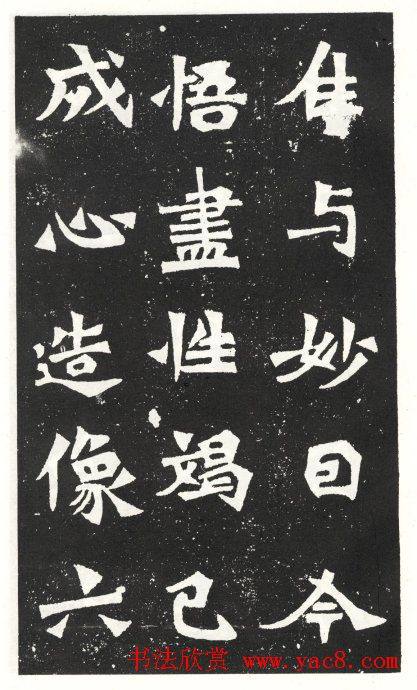 隹与妙日今
悟盡性竭己
烕心造像六
书法欣赏 www.yac8.com